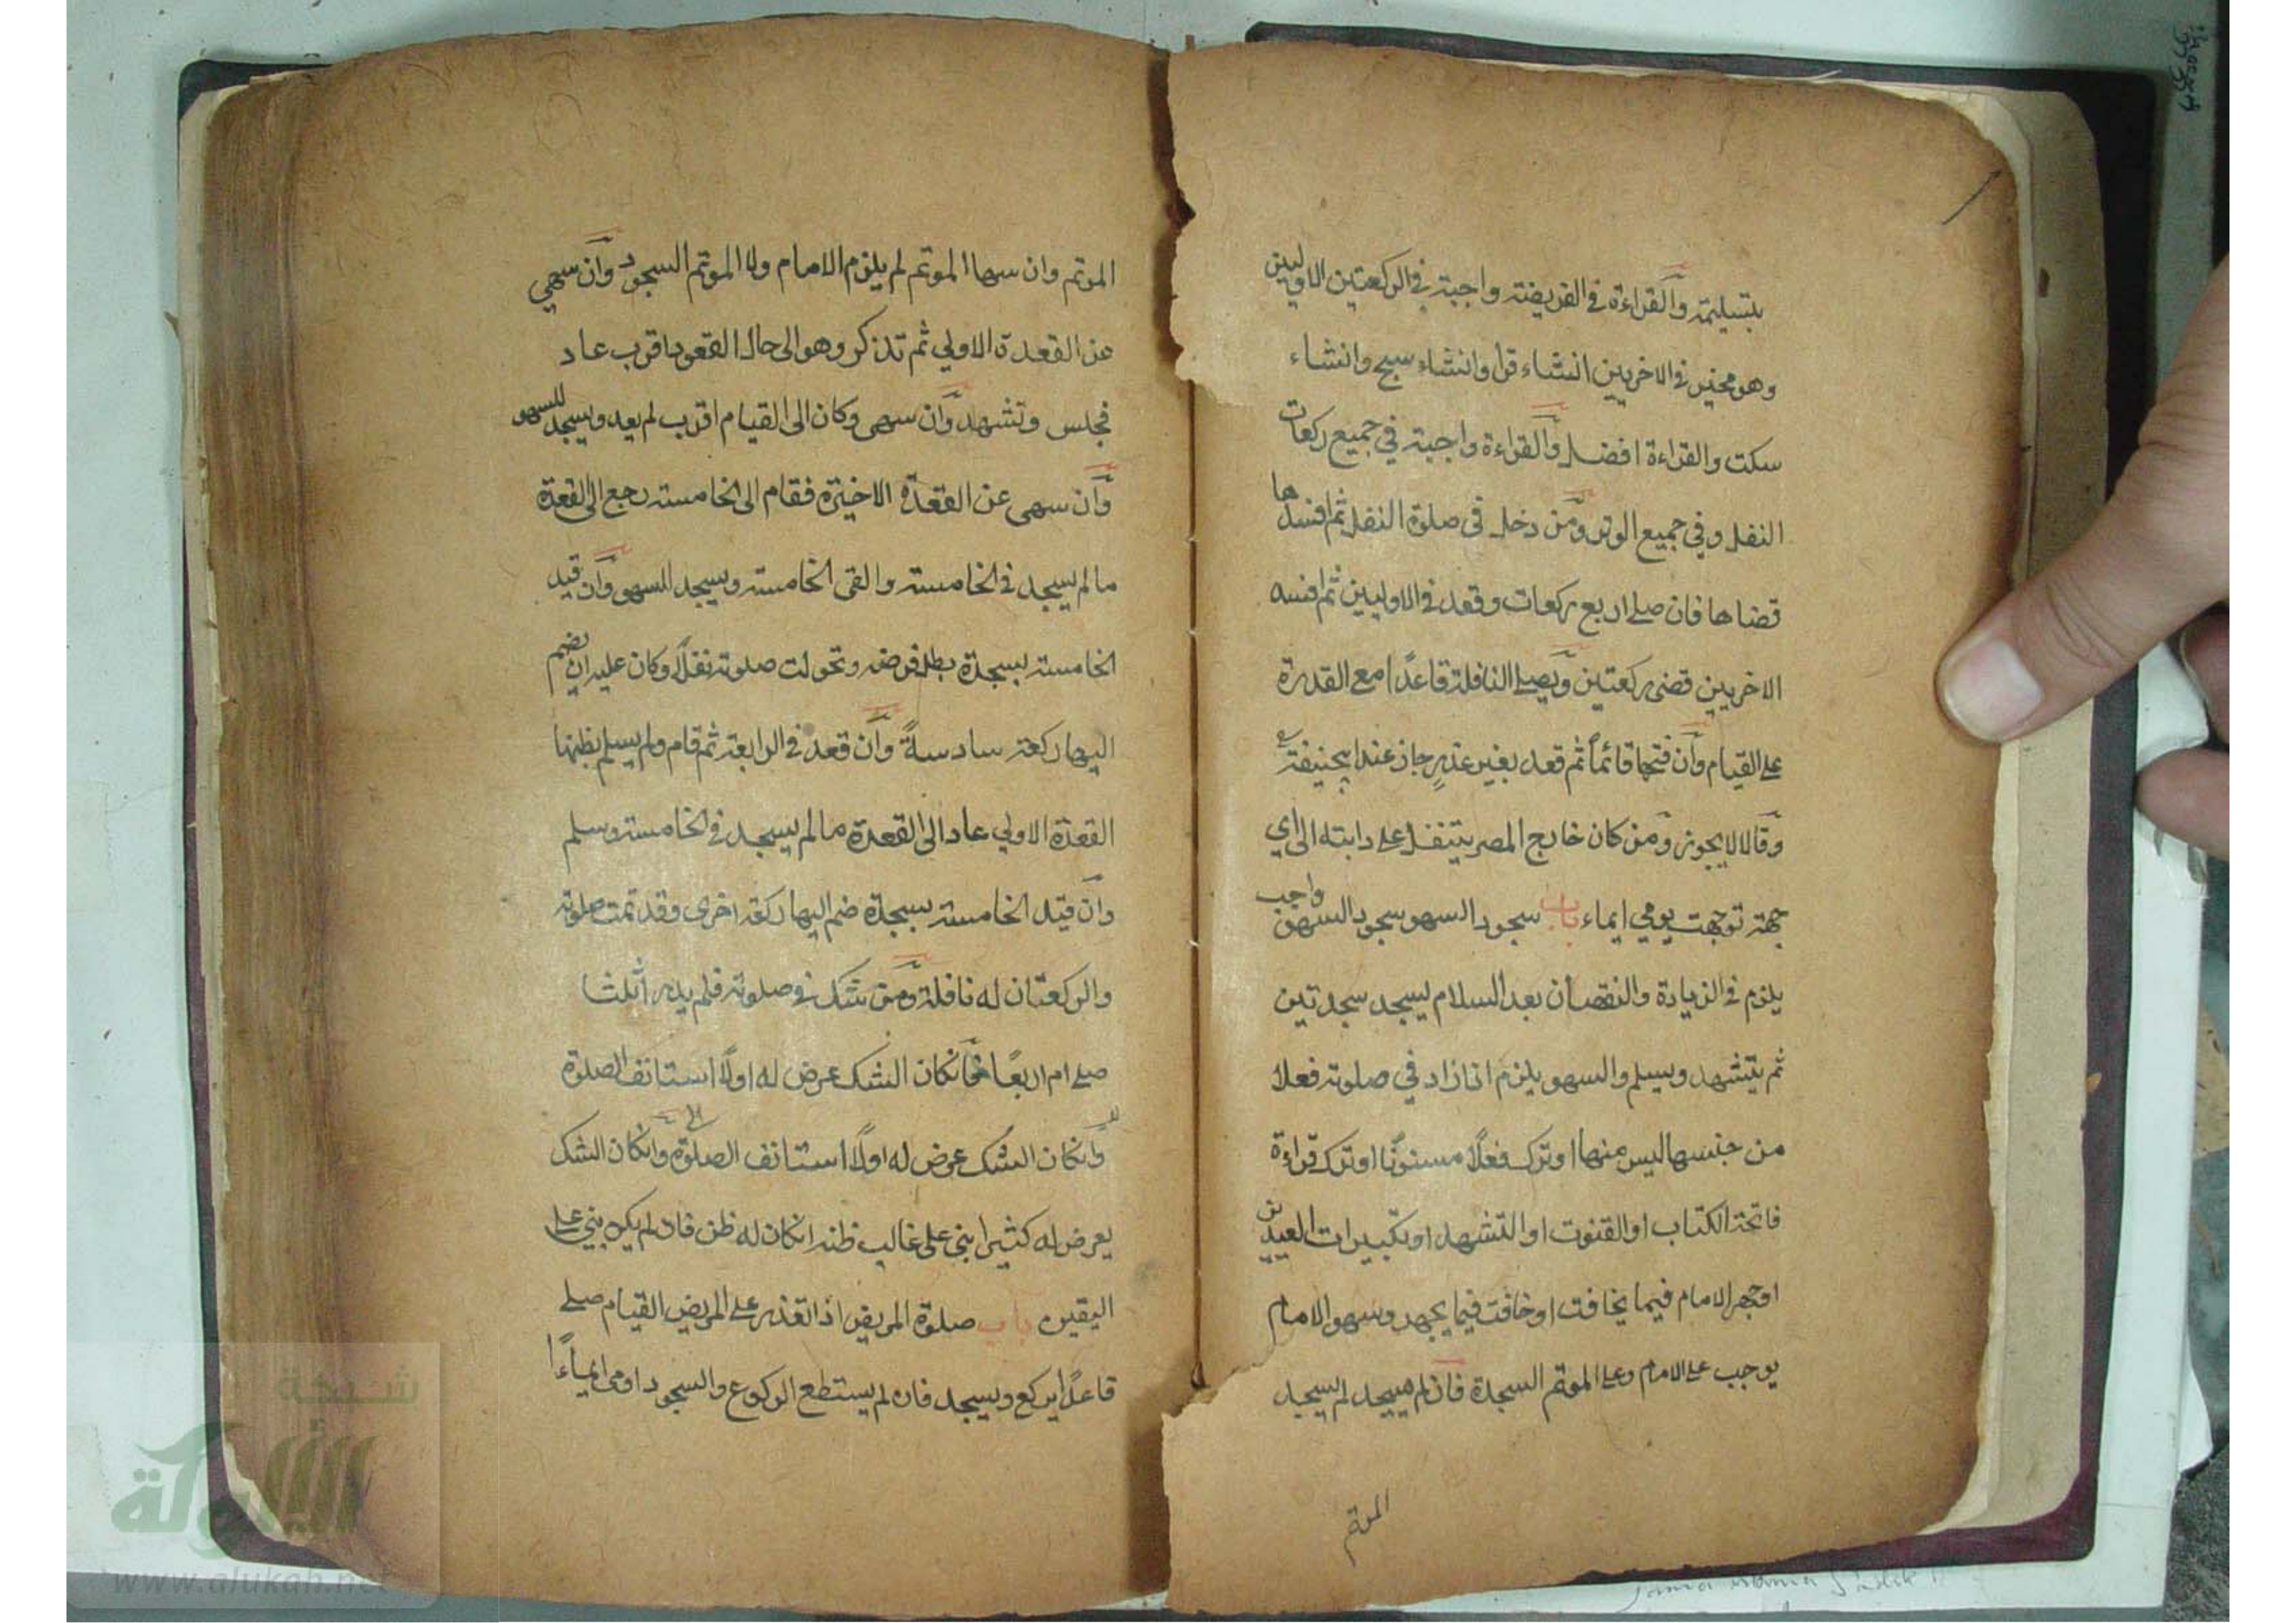 بتسليمة والقراءة في الفريضة واجبة في الركعتين الاوليين
وهو مخير في الاخريين انشاء قرأ وانشاء سبح وانشاء
سكت والقراءة افضل والقراءة واجبة في جميع ركعات
النفل وفي جميع الوتر ومن دخل في صلوة النفل ثم افسدها
قضاها فان صلى اربع ركعات وقعد في الاوليين ثم افسد
الاخريين قضى ركعتين ويصلي النافلة قاعدًا مع القدرة
على القيام وان فتحها قائمًا ثم قعد بغير عذرٍ جاز عند ابيحنيفة
وقالا لا يجوز ومن كان خارج المصر يتنفل على دابته الى اي
جهة توجهت يومي ايماء باب سجود السهو سجود السهو واجب
يلزم في الزيادة والنقصان بعد السلام يسجد سجدتين
ثم يتشهد ويسلم والسهو يلزم اذا زاد في صلوته فعلا
من جنسها ليس منها او ترك فعلًا مسنونًا او ترك قراءة
فاتحة الكتاب او القنوت او التشهد او تكبيرات العيدين
او جهر الامام فيما يخافت او خافت فيما يجهر وسهو الامام
يوجب على الامام وعلى الموتم السجدة فان لم يسجد لم يسجد
الموتم
الموتم وان سها الموتم لم يلزم الامام ولا الموتم السجود وان سهى
عن القعدة الاولي ثم تذكر وهو الى حال القعود اقرب عاد
فجلس وتشهد وان سهى وكان الى القيام اقرب لم يعد ويسجد للسهو
وان سهى عن القعدة الاخيرة فقام الى الخامسة رجع الى القعدة
ما لم يسجد في الخامسة والقى الخامسة ويسجد للسهو وان قيد
الخامسة بسجدة بطل فرضه وتحولت صلوته نفلًا وكان عليه ان يضم
اليها ركعة سادسةً وان قعد في الرابعة ثم قام ولم يسلم يظنها
القعدة الاولي عاد الى القعدة ما لم يسجد في الخامسة وسلم
وان قيد الخامسة بسجدة ضم اليها ركعة اخرى وقد تمت صلوته
والركعتان له نافلة ومن شك في صلوته فلم يدر أثلثا
صلى ام اربعًا فانكان الشك عرض له اولًا استانف الصلوة
وانكان الشك عرض له اولًا استانف الصلوة وانكان الشك
يعرض له كثيرا بنى على غالب ظنه انكان له ظن فان لم يكن بنى على
اليقين باب صلوة المريض اذا تعذر على المريض القيام صلى
قاعدًا يركع ويسجد فان لم يستطع الركوع والسجود اومى ايماءًا
شبكة
الألوكة
www.alukah.net